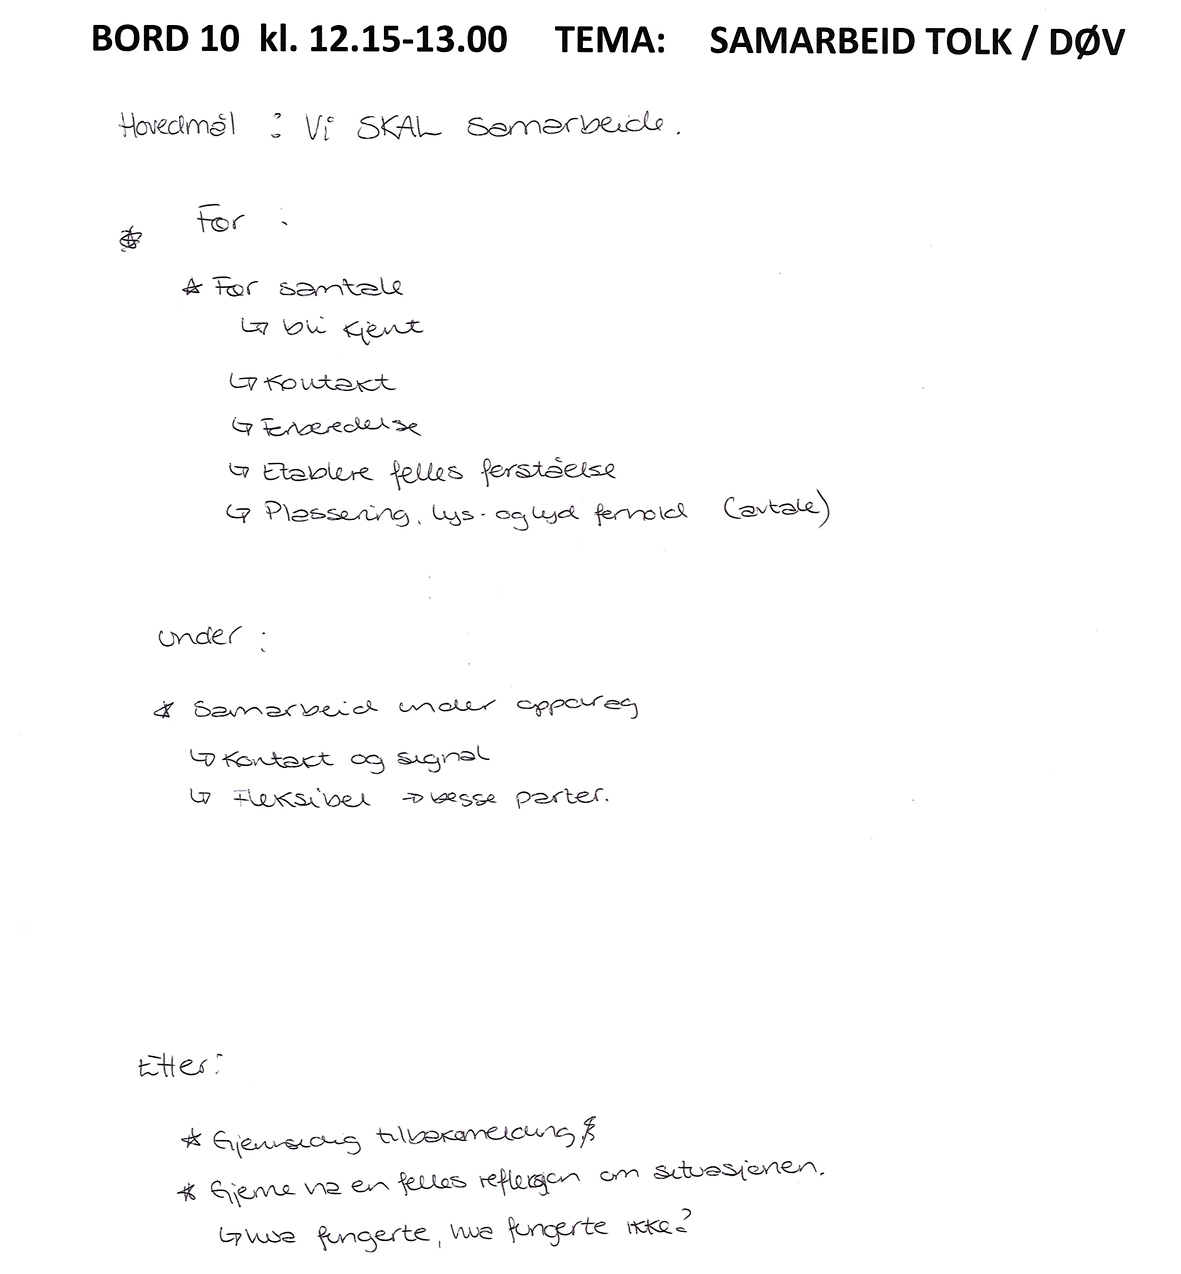 BORD 10 kl. 12.15-13.00 TEMA: SAMARBEID TOLK / DØV
Hovedmål : Vi SKAL samarbeide.
Før :
* Før samtale
↳ bli kjent
↳ Kontakt
↳ Forberedelse
↳ Etablere felles forståelse
↳ Plassering, lys- og lyd forhold (avtale)
Under :
* Samarbeid under oppdrag
↳ Kontakt og signal
↳ Fleksibel → begge parter.
Etter :
* Gjensidig tilbakemelding
* Gjerne ha en felles refleksjon om situasjonen.
↳ hva fungerte, hva fungerte ikke?